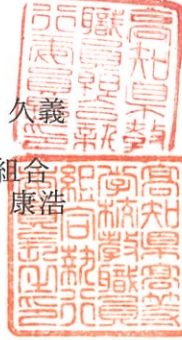 高知県教
職員組合執
行委員長印
久義
組合
康浩
高知県高等
学校教職員
組合執行
委員長之印